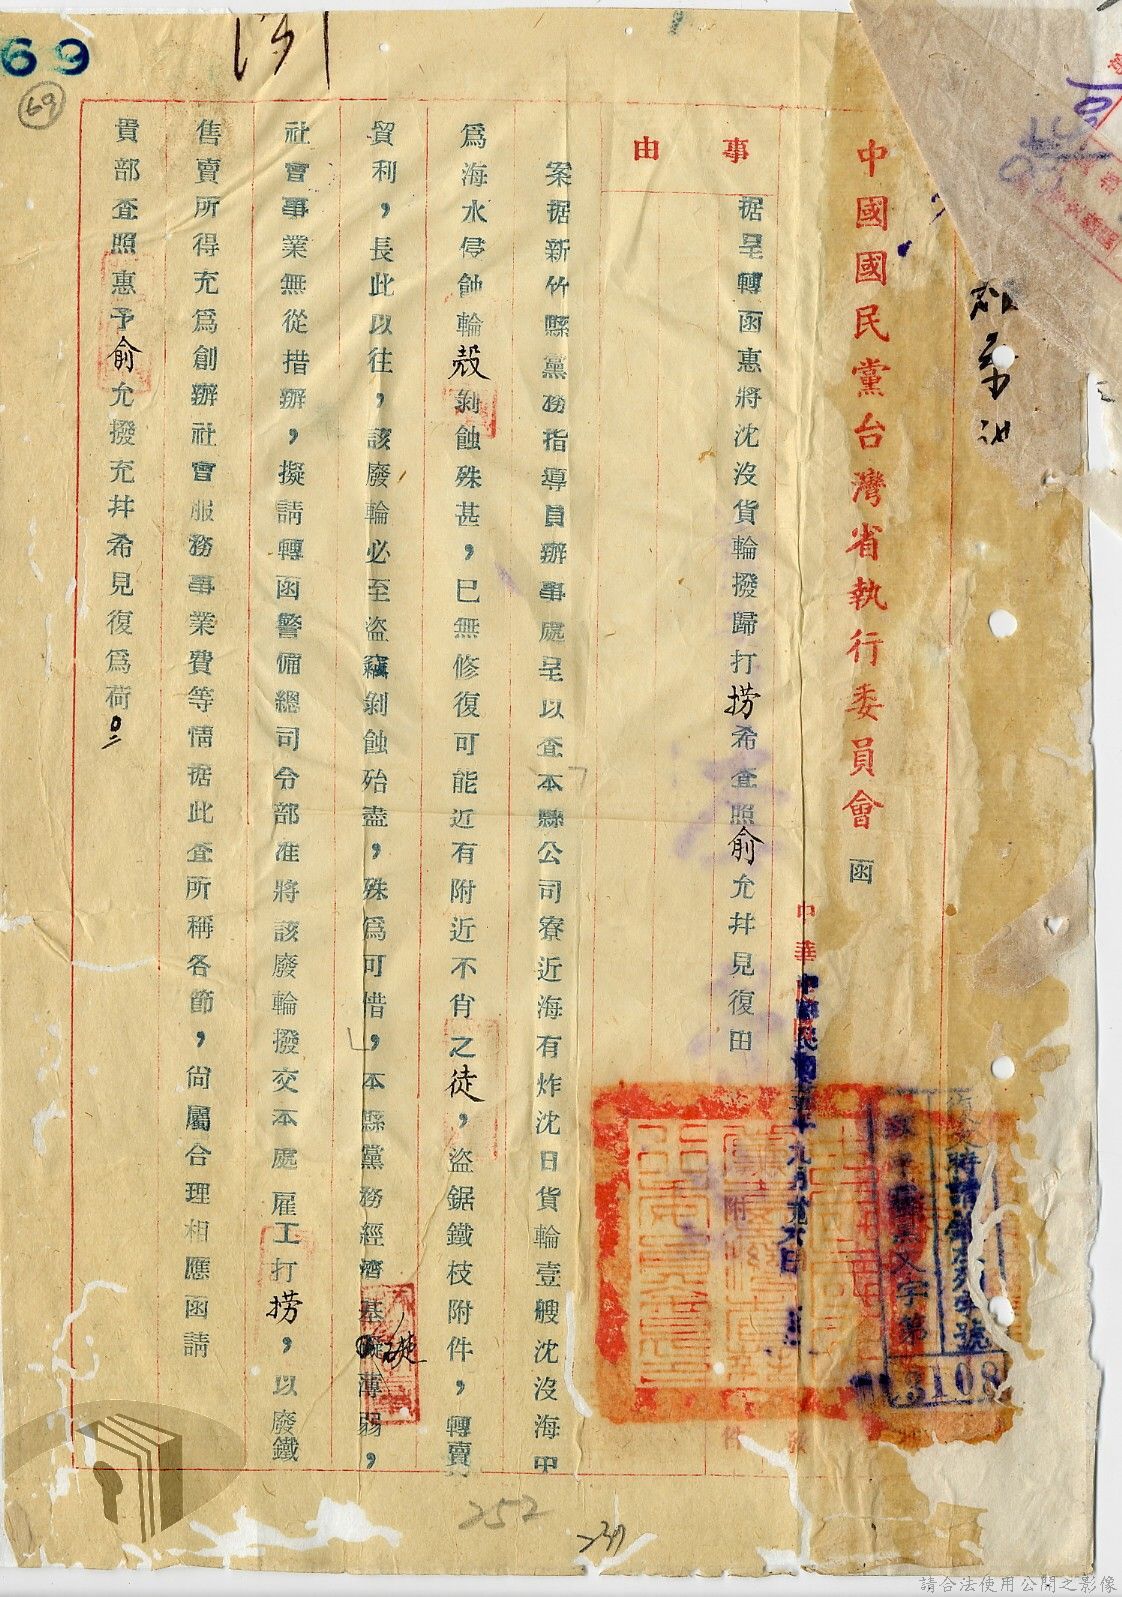 69
69
中國國民黨台灣省執行委員會 函
事由
据呈轉函惠將沈沒貨輪撥歸打撈希查照俞允并見復由
案据新竹縣黨務指導員辦事處呈以查本縣公司寮近海有炸沈日貨輪壹艘沈沒海中
爲海水侵蝕輪殼剝蝕殊甚,已無修復可能近有附近不肖之徒,盜鋸鐵枝附件,轉賣
貿利,長此以往,該廢輪必至盜竊剝蝕殆盡,殊爲可惜,本縣黨務經濟基礎薄弱,
社會事業無從措辦,擬請轉函警備總司令部准將該廢輪撥交本處雇工打撈,以廢鐵
售賣所得充爲創辦社會服務事業費等情据此查所稱各節,尙屬合理相應函請
貴部查照惠予俞允撥充并希見復爲荷
復文時請
號
字第
3108
附
件
252
239
請合法使用公開之影像